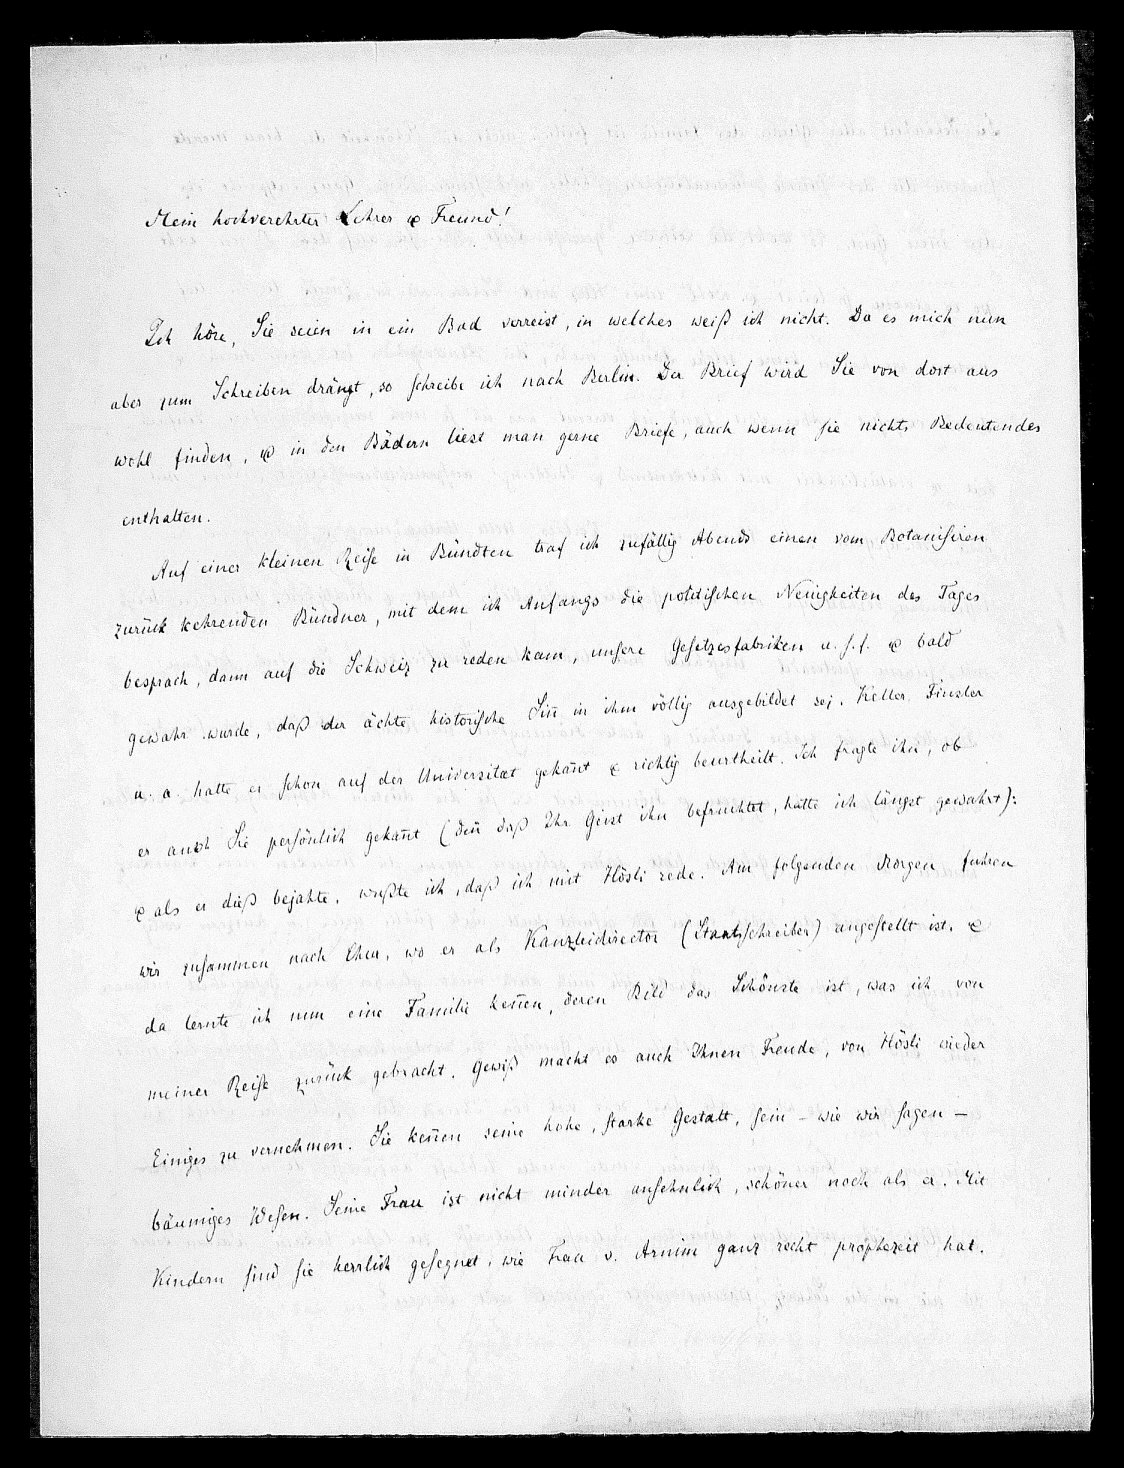 Mein hochverehrter Lehrer & Freund!
Ich höre, Sie seien in ein Bad verreist, in welches weiß ich nicht. Da es mich nun
aber zum Schreiben drängt, so schreibe ich nach Berlin. Der Brief wird Sie von dort aus
wohl finden, & in den Bädern liest man gerne Briefe, auch wenn sie nichts Bedeutendes
enthalten.
Auf einer kleinen Reise in Bündten traf ich zufällig Abends einen vom Botanisiren
zurück kehrenden Bündner, mit dem ich Anfangs die politischen Neuigkeiten des Tages
besprach, dann auf die Schweiz zu reden kam, unsere Gesetzesfabriken u. s. f. & bald
gewahr wurde, daß der ächte historische Sin̄ in ihm völlig ausgebildet sei. Keller, Finsler
u. a. hatte er schon auf der Universitæt gekan̄t & richtig beurtheilt. Ich fragte ihn, ob
er auch Sie persönlich gekan̄t (den̄ daß Ihr Geist ihn befruchtet, hatte ich längst gewahrt):
& als er dieß bejahte, wußte ich, daß ich mit Hösli rede. Am folgenden Morgen fuhren
wir zusammen nach Chur, wo er als Kanzleidirector (Staatsschreiber) angestellt ist, &
da lernte ich nun eine Familie ken̄en, deren Bild das Schönste ist, was ich von
meiner Reise zurück gebracht. Gewiß macht es auch Ihnen Freude, von Hösli wieder
Einiges zu vernehmen. Sie ken̄en seine hohe, starke Gestalt, sein – wie wir sagen –
bäumiges Wesen. Seine Frau ist nicht minder ansehnlich, schöner noch als er. Mit
Kindern sind sie herrlich gesegnet, wie Frau v. Arnim ganz recht prophezeit hat.